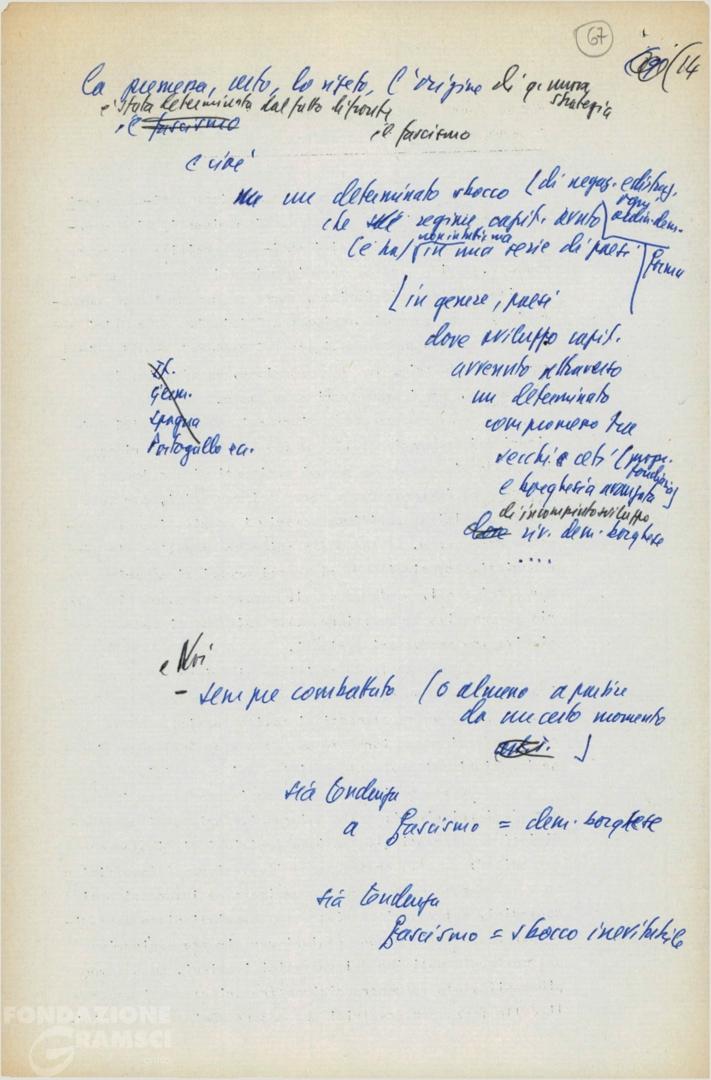 67
(14
La premessa, certo, lo ripeto, l'origine di q. nuova
strategia
è stata determinata dal fatto di fronte
il fascismo
il fascismo
cioè
un determinato sbocco (di negaz. e distruz.
ogni
ordin. dem.
che regime capit. avuto
non in tutti ma
(e ha) in una serie di paesi
forma
(in genere, paesi
dove sviluppo capit.
avvenuto attraverso
un determinato
compromesso tra
vecchi ceti (propr.
fondiaria)
e borghesia avanzata
di incompiuto sviluppo
riv. dem. borghese
....
It.
Germ.
Spagna
Portogallo ecc.
e Noi
- sempre combattuto (o almeno a partire
da un certo momento
)
sia tendenza
a fascismo = dem. borghese
sia tendenza
fascismo = sbocco inevitabile
FONDAZIONE
GRAMSCI